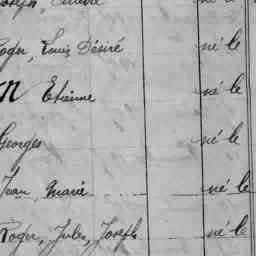 Joseph, né le
Roger, Louis Désiré né le
Etienne né le
Georges né le
Jean, Marie né le
Roger, Jules, Joseph né le